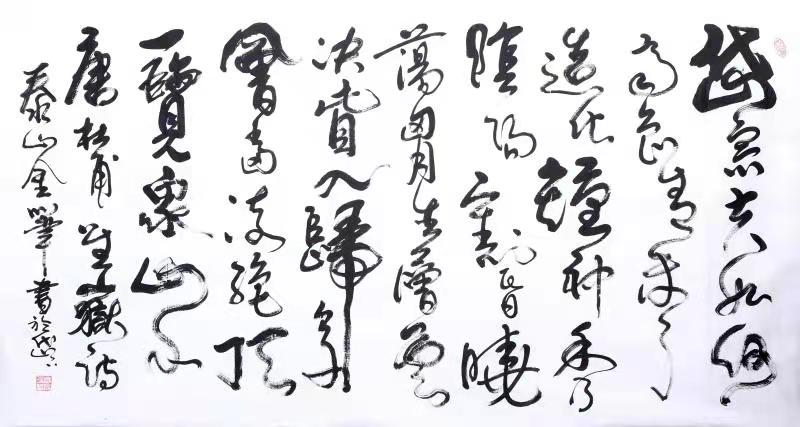 岱宗夫如何
齊魯青未了
造化鍾神秀
陰陽割昏曉
蕩胸生層雲
決眥入歸鳥
會當凌絕頂
一覽眾山小
唐杜甫望嶽詩
泰山金筆書於岱下